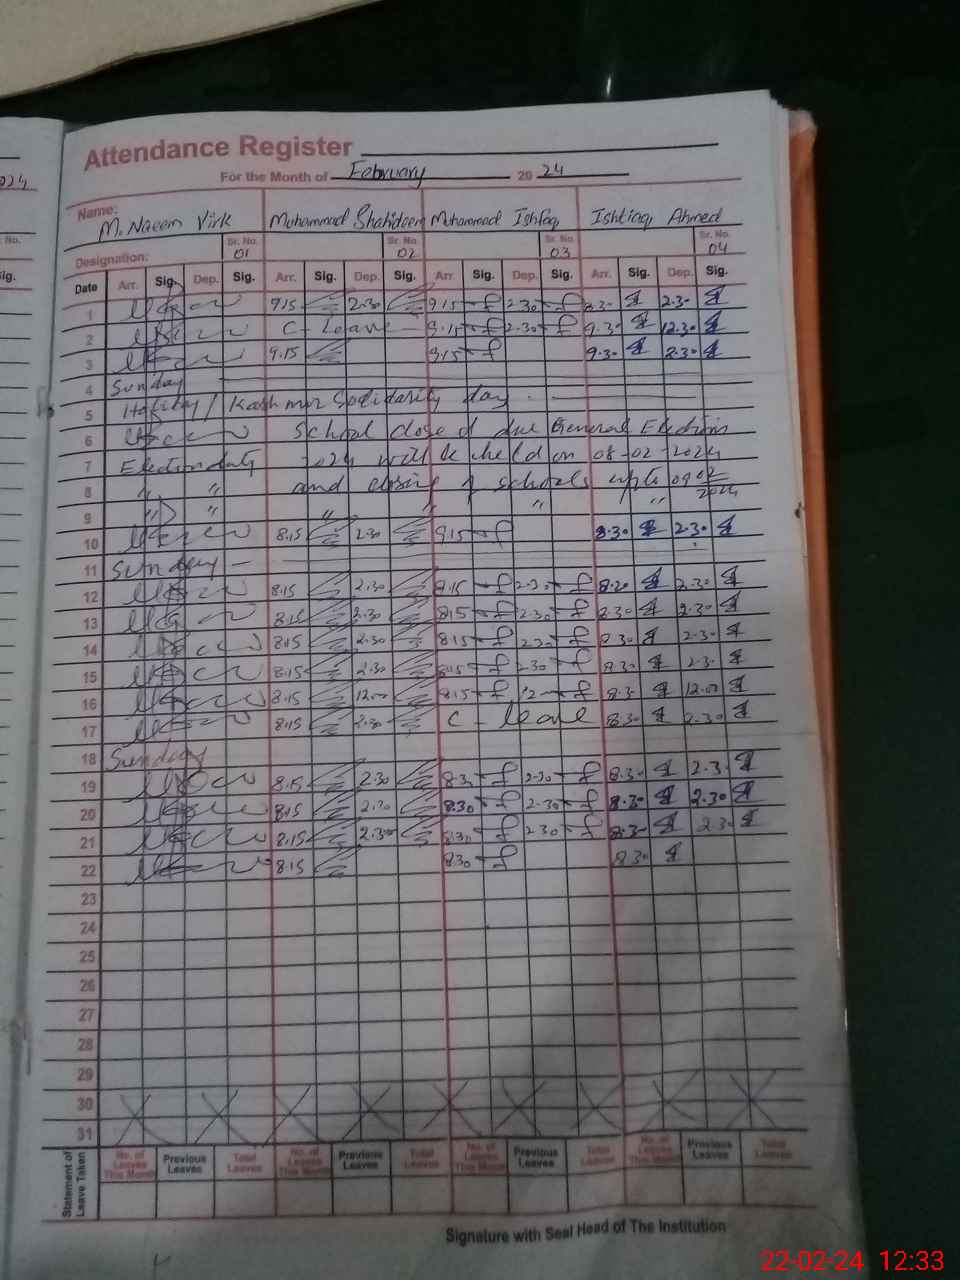 024
No.
Sig.
Attendance Register
For the Month of February 2024
Name: M. Naeem Virk Muhammad Shahideen Muhammad Ishfaq Ishtiaq Ahmed
Sr. No. Sr. No. Sr. No. Sr. No.
Designation: 01 02 03 04
Date Arr. Sig. Dep. Sig. Arr. Sig. Dep. Sig. Arr. Sig. Dep. Sig. Arr. Sig. Dep. Sig.
1 9.15 2.30 9.15 2.30 2.30
2 C - Leave 9.15 2.30 9.30 12.30
3 9.15 9.15 9.30 2.30
4 Sunday
5 Kashmir Solidarity day
6 School closed due General Elections
7 Election duty 2024 will be held on 08-02-2024
8 " " and closing of schools upto 09 02 2024
9 " " " " " "
10 8.15 2.30 9.15 8.30 2.30
11 Sunday
12 8.15 2.30 8.15 2.30 8.30 2.30
13 8.15 2.30 8.15 2.30 8.30 2.30
14 8.15 2.30 8.15 2.30 8.30 2.30
15 8.15 2.30 8.15 2.30 8.30 2.30
16 8.15 12.00 8.15 12 8.30 12.00
17 8.15 2.30 C - leave 8.30 2.30
18 Sunday
19 8.15 2.30 8.30 2.30 8.30 2.30
20 8.15 2.30 8.30 2.30 8.30 2.30
21 8.15 2.30 8.30 2.30 8.30 2.30
22 8.15 8.30 8.30
23
24
25
26
27
28
29
30
31
Statement of Leave Taken
No. of Leaves This Month Previous Leaves Total Leaves No. of Leaves This Month Previous Leaves Total Leaves No. of Leaves This Month Previous Leaves Total Leaves No. of Leaves This Month Previous Leaves Total Leaves
Signature with Seal Head of The Institution
22-02-24 12:33